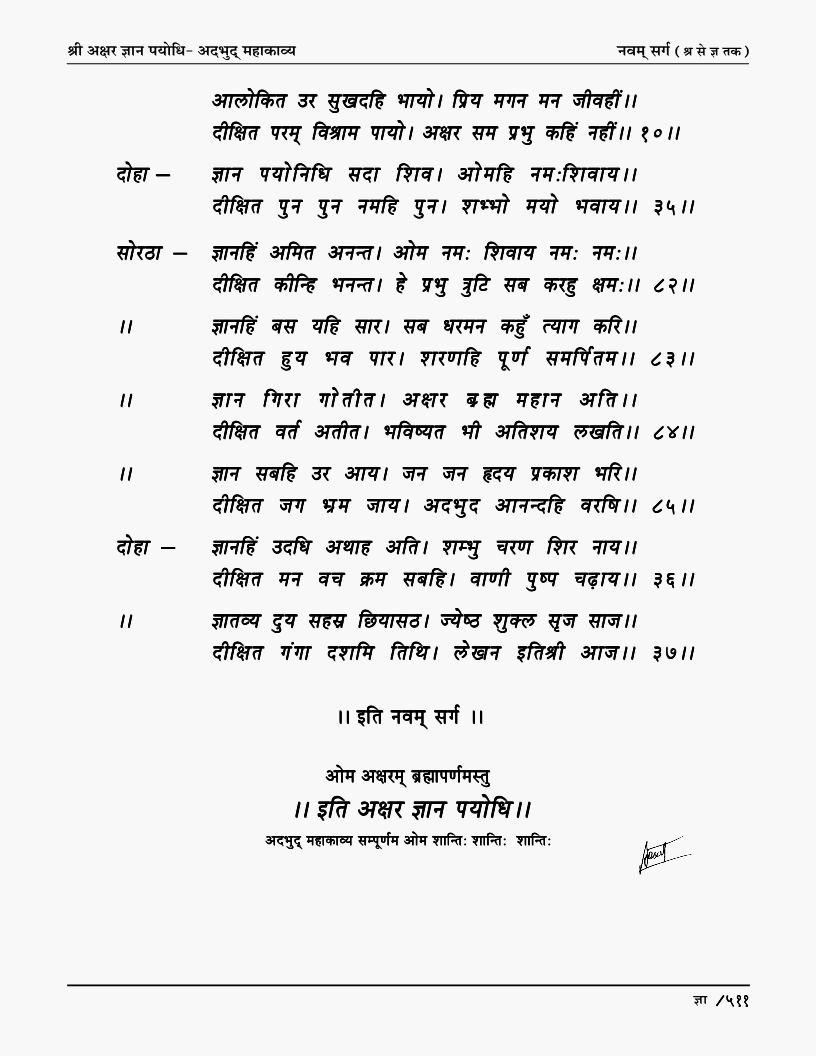 श्री अक्षर ज्ञान पयोधि- अदभुद् महाकाव्य नवम् सर्ग ( श्र से ज्ञ तक )
आलोकित उर सुखदहि भायो। प्रिय मगन मन जीवहीं।।
दीक्षित परम् विश्राम पायो। अक्षर सम प्रभु कहिं नहीं।। १०।।
दोहा – ज्ञान पयोनिधि सदा शिव। ओमहि नमःशिवाय।।
दीक्षित पुन पुन नमहि पुन। शभ्भो मयो भवाय।। ३५।।
सोरठा – ज्ञानहिं अमित अनन्त। ओम नमः शिवाय नमः नमः।।
दीक्षित कीन्हि भनन्त। हे प्रभु त्रुटि सब करहु क्षमः।। ८२।।
।। ज्ञानहिं बस यहि सार। सब धरमन कहुँ त्याग करि।।
दीक्षित हुय भव पार। शरणहि पूर्ण समर्पितम।। ८३।।
।। ज्ञान गिरा गोतीत। अक्षर ब्रह्म महान अति।।
दीक्षित वर्त अतीत। भविष्यत भी अतिशय लखति।। ८४।।
।। ज्ञान सबहि उर आय। जन जन हृदय प्रकाश भरि।।
दीक्षित जग भ्रम जाय। अदभुद आनन्दहि वरषि।। ८५।।
दोहा – ज्ञानहिं उदधि अथाह अति। शम्भु चरण शिर नाय।।
दीक्षित मन वच क्रम सबहि। वाणी पुष्प चढ़ाय।। ३६।।
।। ज्ञातव्य दुय सहस्र छियासठ। ज्येष्ठ शुक्ल सृज साज।।
दीक्षित गंगा दशमि तिथि। लेखन इतिश्री आज।। ३७।।
।। इति नवम् सर्ग ।।
ओम अक्षरम् ब्रह्मापर्णमस्तु
।। इति अक्षर ज्ञान पयोधि।।
अदभुद् महाकाव्य सम्पूर्णम ओम शान्तिः शान्तिः शान्तिः
ज्ञा /५११